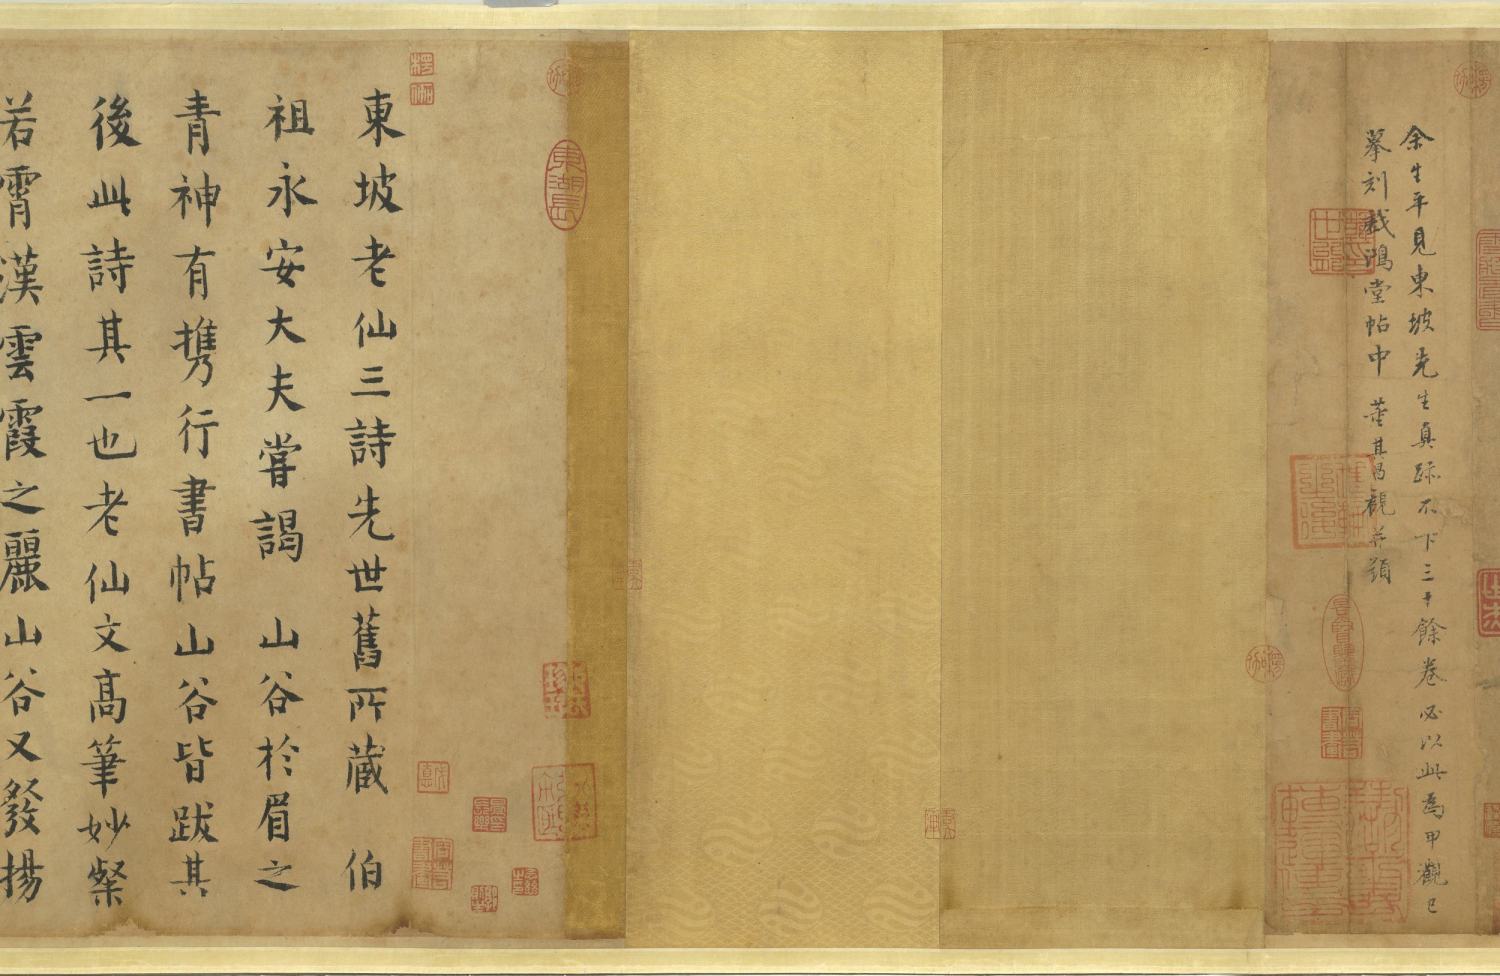 余生平見東坡先生真跡不下三十餘卷必以此為甲觀已
摹刻戲鴻堂帖中 董其昌觀并題
東坡老仙三詩先世舊所藏 伯
祖永安大夫嘗謁 山谷於眉之
青神有攜行書帖山谷皆跋其
後此詩其一也老仙文高筆妙粲
若霄漢雲霞之麗山谷又發揚
東湖長